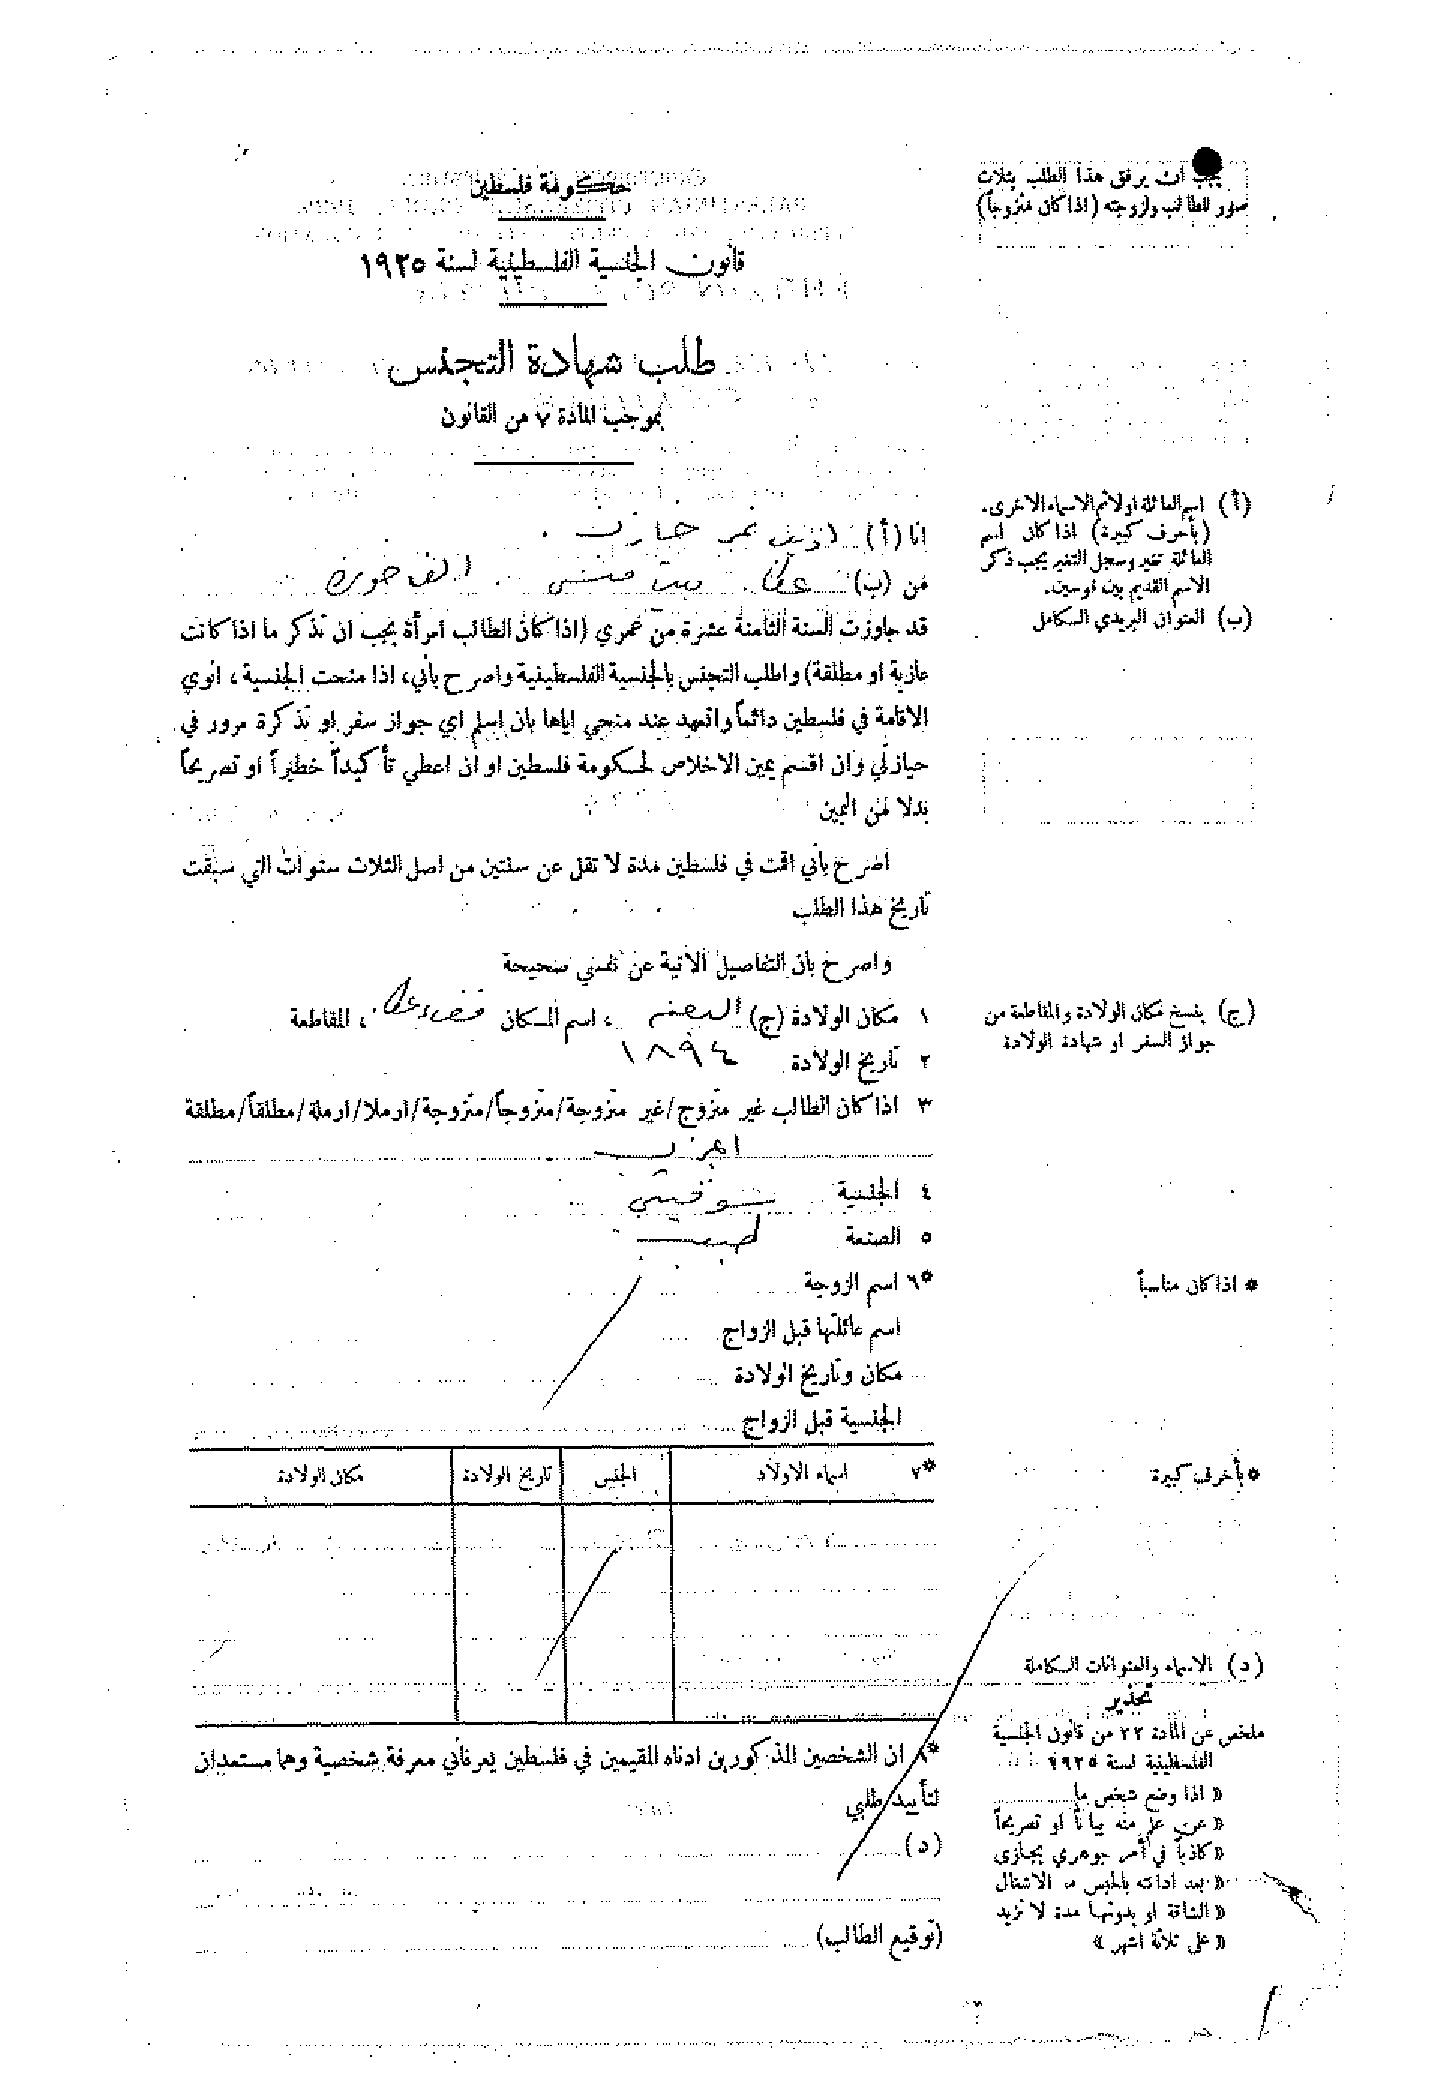 يجب ان يرفق هذا الطلب بثلاث
صور للطالب ولزوجته (اذا كان متزوجاً)
حكومة فلسطين
قانون الجنسية الفلسطينية لسنة ١٩٢٥
طلب شهادة التجنس
بموجب المادة ٧ من القانون
(أ) اسم العائلة اولا ثم الاسماء الاخرى.
(بأحرف كبيرة) اذا كان اسم
العائلة تغير وسجل التغير يجب ذكر
الاسم القديم بين قوسين.
(ب) العنوان البريدي الكامل
انا (أ) نمر
من (ب) عكا
قد جاوزت السنة الثامنة عشرة من عمري (اذا كان الطالب امرأة يجب ان تذكر ما اذا كانت
عازبة او مطلقة) واطلب التجنس بالجنسية الفلسطينية واصرح بأني، اذا منحت الجنسية، انوي
الاقامة في فلسطين دائماً واتعهد عند منحي اياها بان اسلم اي جواز سفر او تذكرة مرور في
حيازتي وان اقسم يمين الاخلاص لحكومة فلسطين او ان اعطي تأكيداً خطيراً او تصريحاً
بدلا من اليمين
اصرح بأني اقمت في فلسطين مدة لا تقل عن سنتين من اصل الثلاث سنوات التي سبقت
تاريخ هذا الطلب
واصرح بان التفاصيل الآتية عن نفسي صحيحة
(ج) ينسخ مكان الولادة والمقاطعة من
جواز السفر او شهادة الولادة
١ مكان الولادة (ج) ، اسم المكان قضاء عكا ، المقاطعة
٢ تاريخ الولادة ١٨٩٤
٣ اذا كان الطالب غير متزوج/غير متزوجة/متزوجاً/متزوجة/ارملا/ارملة/مطلقاً/مطلقة
اعزب
٤ الجنسية
٥ الصنعة طبيب
* اذا كان مناسباً
*٦ اسم الزوجة
اسم عائلتها قبل الزواج
مكان وتاريخ الولادة
الجنسية قبل الزواج
* بأحرف كبيرة
*٧ اسماء الاولاد الجنس تاريخ الولادة مكان الولادة
(د) الاسماء والعنوانات الكاملة
تحذير
ملخص عن المادة ٢٢ من قانون الجنسية
الفلسطينية لسنة ١٩٢٥
« اذا وضع شخص ما
« عن علم منه بياناً او تصريحاً
« كاذباً في أمر جوهري يجازى
« بعد ادانته بالحبس مع الاشغال
« الشاقة او بدونها مدة لا تزيد
« على ثلاثة اشهر »
*٨ ان الشخصين المذكورين ادناه المقيمين في فلسطين يعرفاني معرفة شخصية وهما مستعدان
لتأييد طلبي
(د)
(توقيع الطالب)